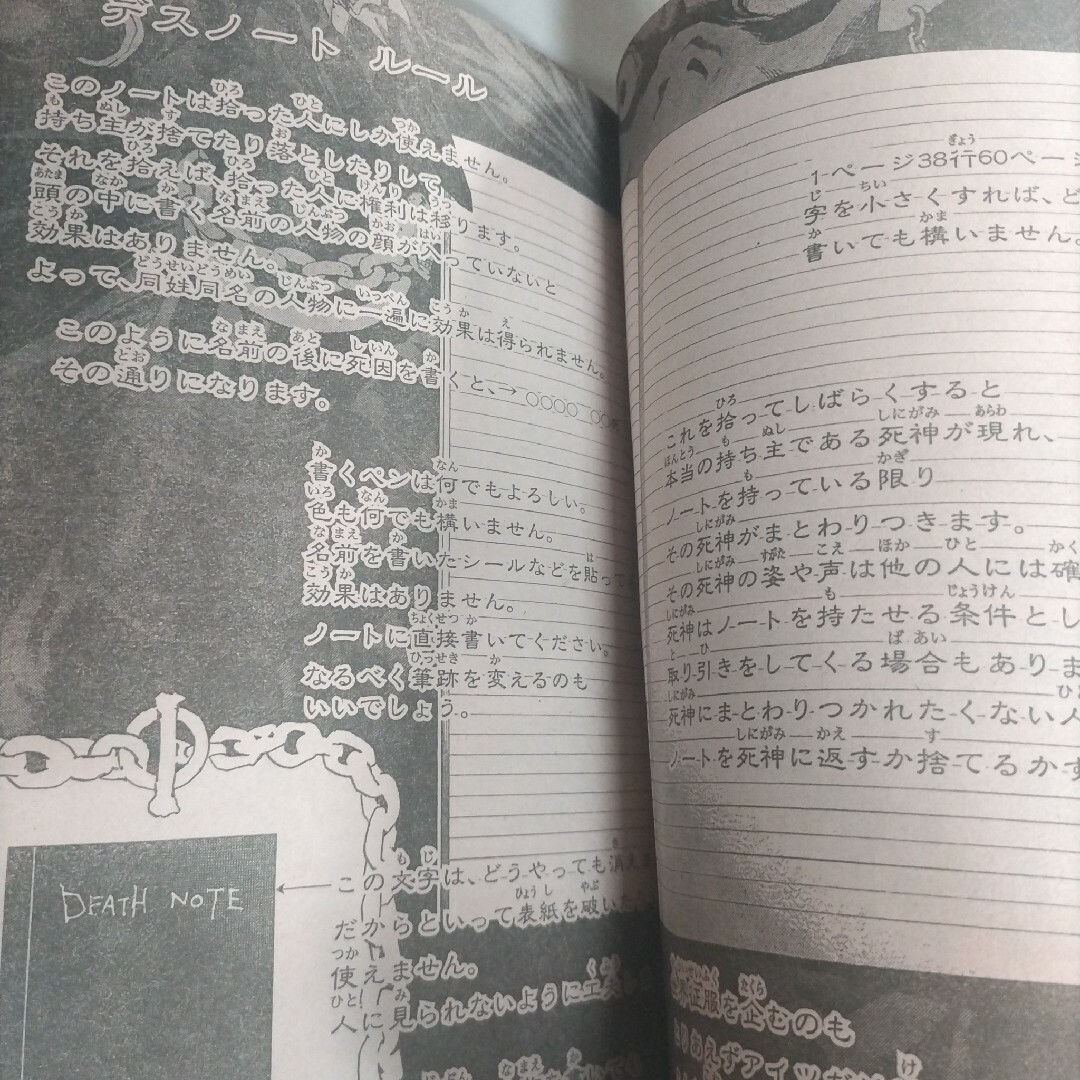 デスノート ルール
このノートは拾った人にしか使えません。
持ち主が捨てたり落としたりして、
それを拾えば、拾った人に権利は移ります。
頭の中に書く名前の人物の顔が入っていないと
効果はありません。
よって、同姓同名の人物に一遍に効果は得られません。
このように名前の後に死因を書くと、→ ○○○○ ○○
その通りになります。
書くペンは何でもよろしい。
色も何でも構いません。
名前を書いたシールなどを貼って
効果はありません。
ノートに直接書いてください。
なるべく筆跡を変えるのも
いいでしょう。
DEATH NOTE
この文字は、どうやっても消え
だからといって表紙を破いた
使えません。
人に見られないように工夫
1ページ38行60ページ
字を小さくすれば、ど
書いても構いません。
これを拾ってしばらくすると
本当の持ち主である死神が現れ、
ノートを持っている限り
その死神がまとわりつきます。
その死神の姿や声は他の人には確
死神はノートを持たせる条件とし
取り引きをしてくる場合もありま
死神にまとわりつかれたくない人
ノートを死神に返すか捨てるかす
征服を企むのも
りあえずアイツ